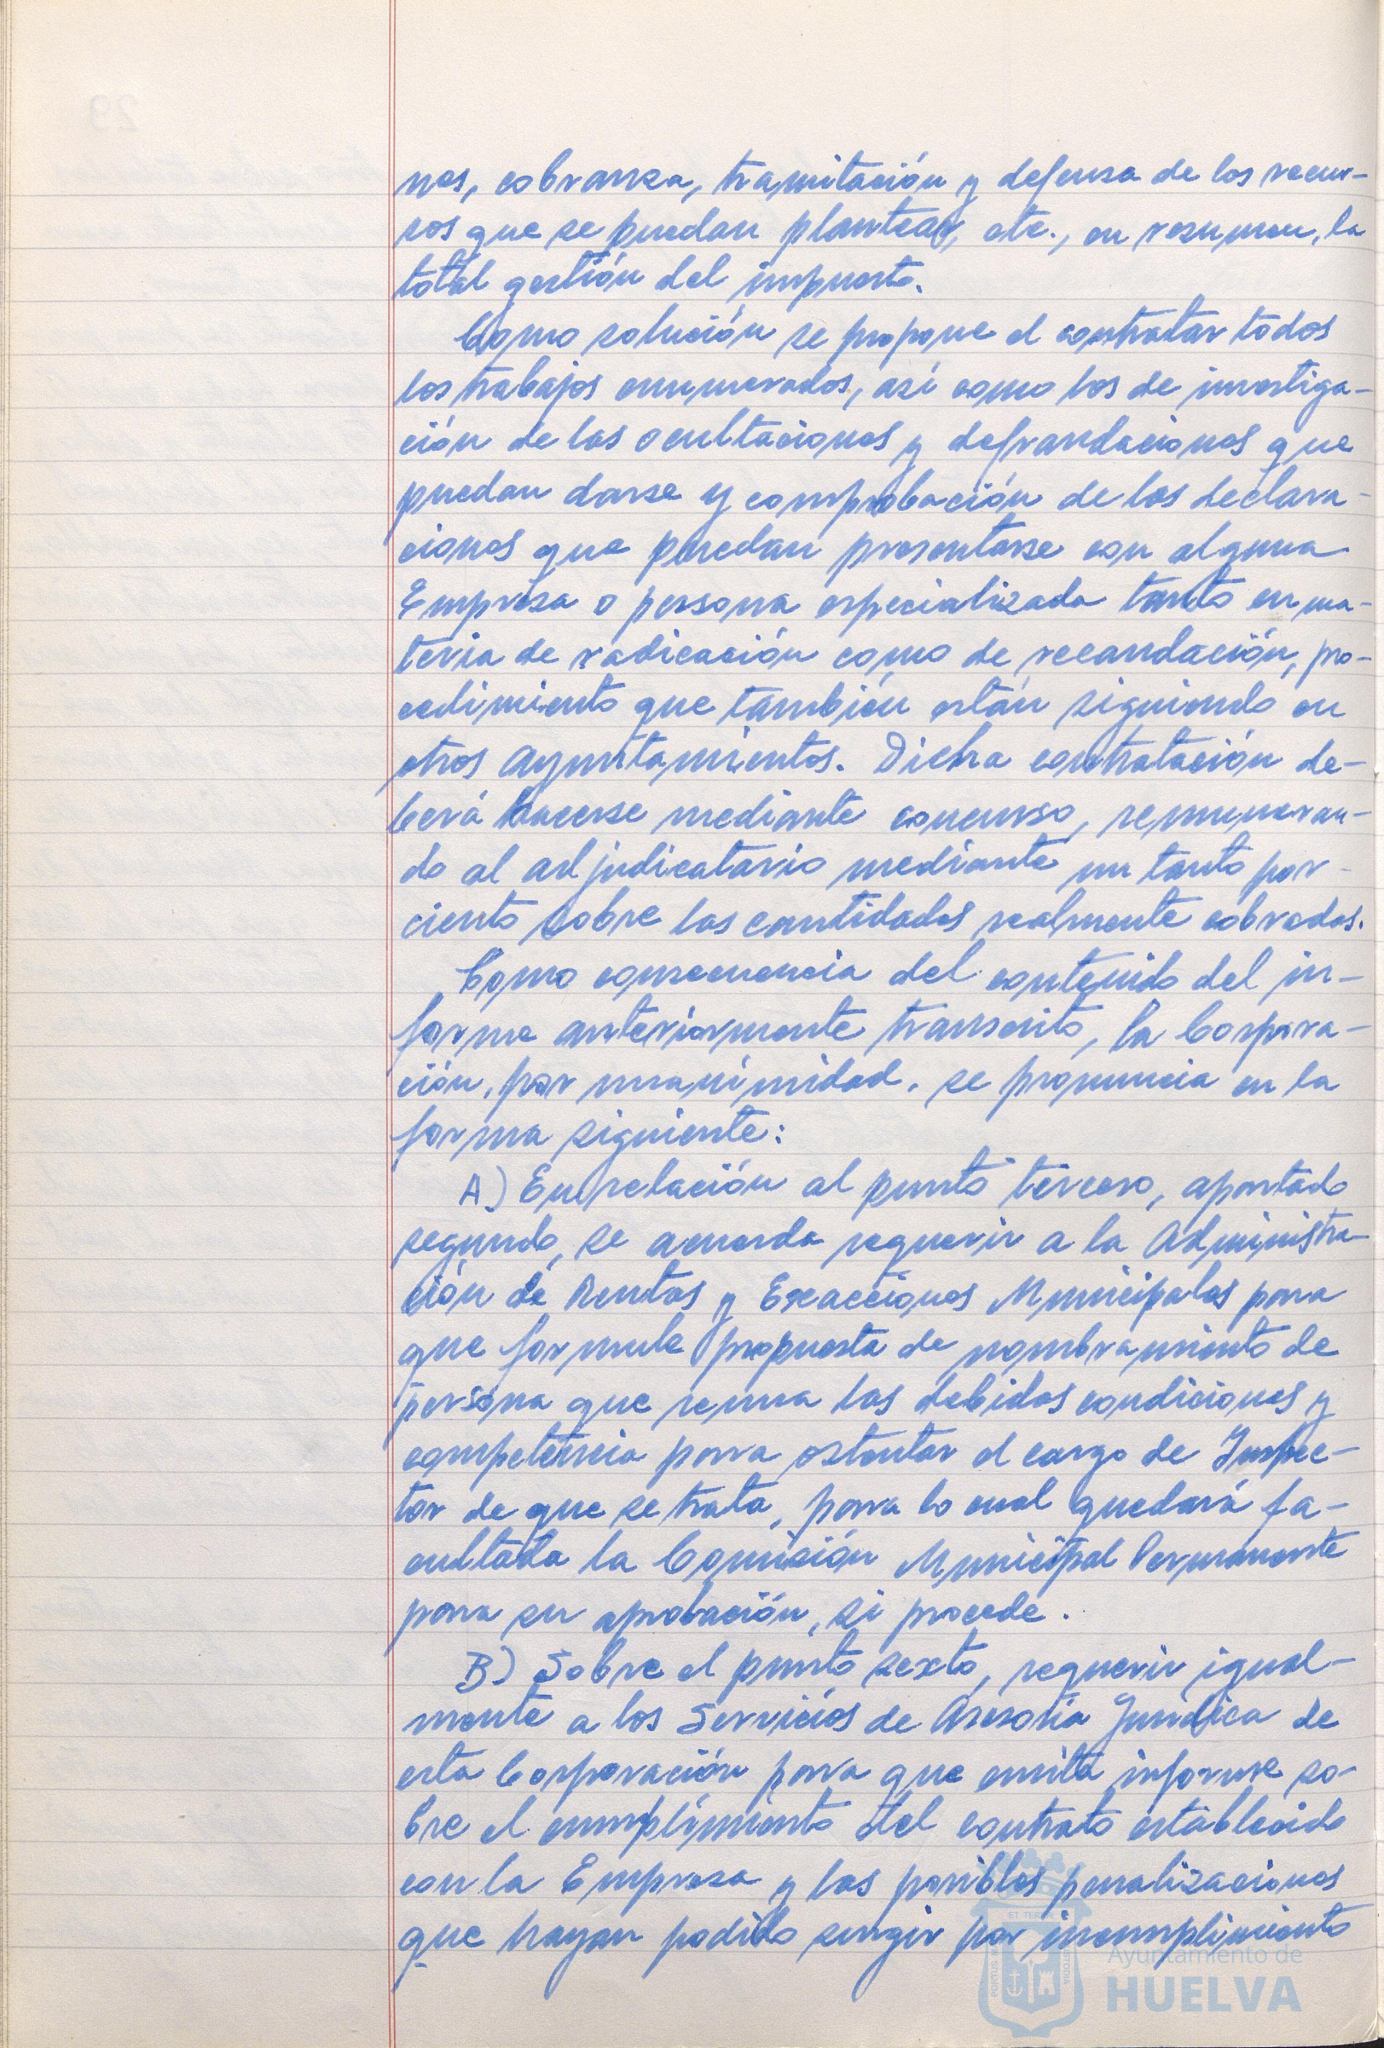 nes, cobranza, tramitación y defensa de los recur-
sos que se puedan plantear, etc., en resumen, la
total gestión del impuesto.
Como solución se propone el contratar todos
los trabajos enumerados, así como los de investiga-
ción de las ocultaciones y defraudaciones que
puedan darse y comprobación de las declara-
ciones que puedan presentarse con alguna
Empresa o persona especializada tanto en ma-
teria de radicación como de recaudación, pro-
cedimiento que también están siguiendo en
otros Ayuntamientos. Dicha contratación de-
berá hacerse mediante concurso, remuneran-
do al adjudicatario mediante un tanto por
ciento sobre las cantidades realmente cobradas.
Como consecuencia del contenido del in-
forme anteriormente transcrito, la Corpora-
ción, por unanimidad, se pronuncia en la
forma siguiente:
A) En relación al punto tercero, apartado
segundo, se acuerda requerir a la Administra-
ción de Rentas y Exacciones Municipales para
que formule propuesta de nombramiento de
persona que reuna las debidas condiciones y
competencia para ostentar el cargo de Inspec-
tor de que se trata, para lo cual quedará fa-
cultada la Comisión Municipal Permanente
para su aprobación, si procede.
B) Sobre el punto sexto, requerir igual-
mente a los Servicios de Asesoría Jurídica de
esta Corporación para que emita informe so-
bre el cumplimiento del contrato establecido
con la Empresa y las posibles penalizaciones
que hayan podido surgir por incumplimiento
Ayuntamiento de
HUELVA